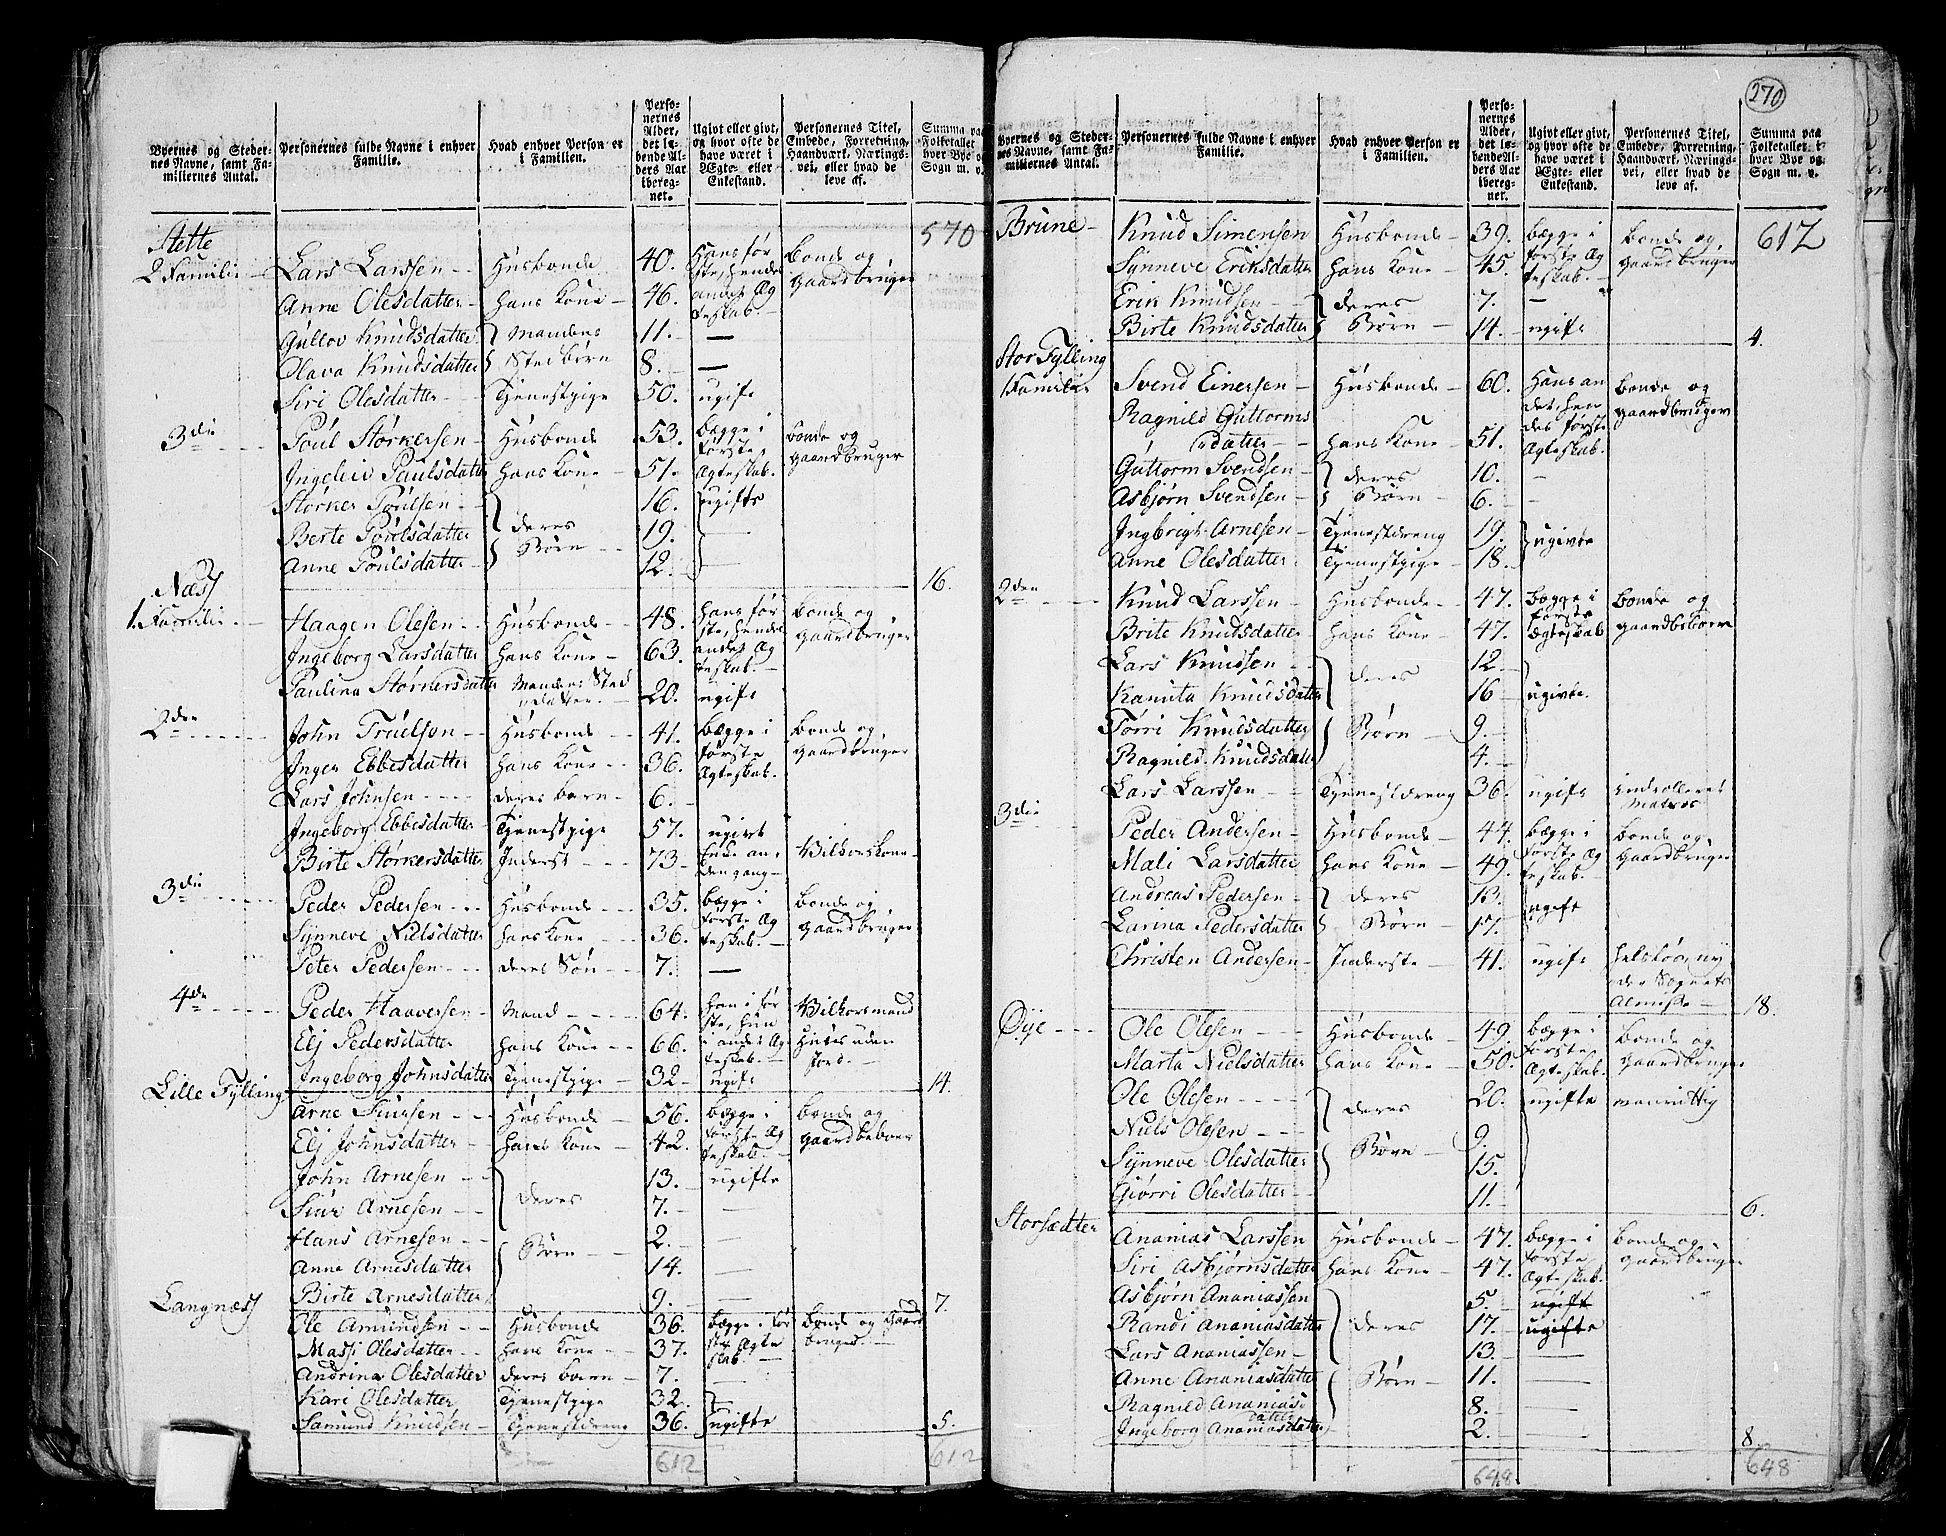 270
Byernes og Steder-
nes Navne, samt Fa-
miliernes Antal.
Personernes fulde Navne i enhver
Familie.
Hvad enhver Person er
i Familien.
Perso-
nernes
Alder,
det lø-
bende Al-
ders Aar
iberegnet.
Ugivt eller givt,
og hvor ofte de
have været i
Ægte- eller
Enkestand.
Personernes Titel,
Embede, Forretning,
Haandværk, Nærings-
vei, eller hvad de
leve af.
Summa paa
Folketallet i
hver Bye og
Sogn m. v.
Stette 570
2 Familie Lars Larssen Husbonde 40. Hans før- Bonde og
ste, hendes gaardbruger
Anne Olesdatter hans Kone 46. andet Æg
teskab.
Gullov Knudsdatter Mandens 11. —
Olava Knudsdatter Stedbørn 8. —
Siri Olesdatter Tjenestpige 50. ugift
3die Poul Størkersen Husbonde 53. Begge i Bonde og
første gaardbruger
Ingeleiv Paulsdatter hans Kone 51. Ægteskab.
Størker Poulsen 16. ugifte
Berte Poulsdatter deres 19. —
Anne Poulsdatter Børn 12. —
Næss 16.
1. Familie Haagen Olesen Husbonde 48. hans før Bonde og
ste, hendes gaardbruger
Ingeborg Larsdatter hans Kone 63. andet Æg
teskab.
Paulina Størkersdatter Mandens Sted 20. ugift
datter.
2den John Truelsen Husbonde 41. Begge i Bonde og
første gaardbruger
Inger Ebbesdatter hans Kone 36. Ægteskab.
Lars Johnsen deres barn 6.
Ingeborg Ebbesdatter Tjenestpige 57. ugivt
Birte Størkersdatter Inderst 73 Enke an- Vilkorskone
den gang
3die Peder Pedersen Husbonde 35. Begge i Bonde og
første Æg gaardbruger
Synneve Nielsdatter hans Kone 36. teskab.
Peter Pedersen deres Søn 7. —
4de Peder Haaversen Mand 64. han i før Vilkorsmand
ste, hun Huus uden
Elj Pedersdatter hans Kone 66. i andet Æg Jord.
teskab.
Ingeborg Johnsdatter Tjenestpige 32 ugift 14.
Lille Fylling
Arne Siursen Husbonde 56. Begge i bonde og
første Æg gaardbeboer
Elj Johnsdatter hans Kone 42. teskab.
John Arnesen 13. ugifte
Siur Arnesen deres 7. —
Hans Arnesen 2. —
Anne Arnesdatter Børn 14. —
Birte Arnesdatter 9. — 7.
Langnæss
Ole Amundsen Husbonde 36. Begge i før Bonde og Gaard
ste Ægte bruger
Massi Olesdatter hans Kone 37. skab.
Andrina Olesdatter deres barn 7. —
Kari Olesdatter Tjenestpige 32.
Samund Knudsen Tjenestdreng 36. ugifte 5.
612 612
Byernes og Steder-
nes Navne, samt Fa-
miliernes Antal.
Personernes fulde Navne i enhver
Familie.
Hvad enhver Person er
i Familien.
Perso-
nernes
Alder,
det lø-
bende Al-
ders Aar
iberegnet.
Ugivt eller givt,
og hvor ofte de
have været i
Ægte- eller
Enkestand.
Personernes Titel,
Embede, Forretning,
Haandværk, Nærings-
vei, eller hvad de
leve af.
Summa paa
Folketallet i
hver Bye og
Sogn m. v.
Brune Knud Simensen Husbonde 39. Begge i Bonde og 612
første Æg gaardbruger
Synneve Eriksdatter hans Kone 45. teskab.
Erik Knudsen deres 7. —
Birte Knudsdatter Børn 14. ugift
4.
Stor Fylling
1 Familie Svend Einersen Husbonde 60. Hans an Bonde og
det, hen gaardbruger
Ragnild Guttorms des første
datter hans Kone 51. Ægteskab.
Guttorm Svendsen deres 10. —
Asbjørn Svendsen Børn 6. —
Ingbrigt Arnesen Tjenestdreng 19.
Anne Olesdatter Tjenestpige 18. ugivte
2den Knud Larssen Husbonde 47. Begge i Bonde og
første
Brite Knudsdatter hans Kone 47. Ægteskab
Lars Knudsen deres 12.
Kanuta Knudsdatter 16 ugivte.
Torri Knudsdatter Børn 9.
Ragnild Knudsdatter 4.
Lars Larssen Tjenestdreng 36. ugift Indrolleret
Matros
3die Peder Andersen Husbonde 44. Begge i Bonde og
første Æg gaardbruger
Mali Larsdatter hans Kone 49. teskab.
Andreas Pedersen deres 13.
Larina Pedersdatter Børn 17. ugift
Christen Andersen Inderste 41. ugift
der Sognets
Almisse 18.
Øye Ole Olesen Husbonde 49. Begge i Bonde og
første gaardbruger
Marta Nielsdatter hans Kone 50. Ægteskab.
Ole Olesen deres 20. ugifte vanvittig
Niels Olesen 9.
Synneve Olesdatter Børn 15.
Giørri Olesdatter 11.
6.
Storsædter
Ananias Larssen Husbonde 47. Begge i Bonde og
første gaardbruger
Siri Asbjørnsdatter hans Kone 47. Ægteskab.
Asbjørn Ananiassen 5. ugift
Randi Ananiasdatter deres 17. ugifte
Lars Ananiassen 13. —
Anne Ananiasdatter Børn 11. —
Ragnild Ananias 8. —
datter
Ingeborg Ananiasdatter 2. — 8.
648 648